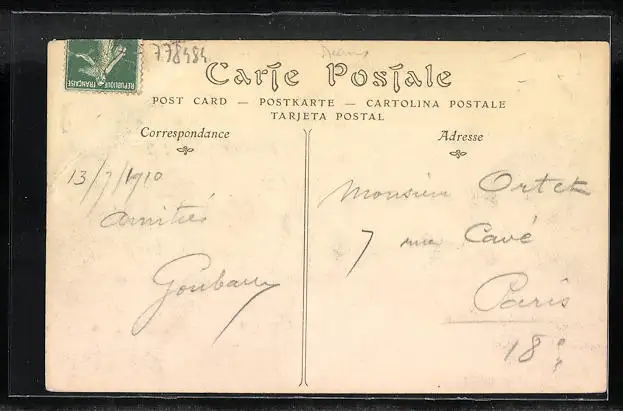 REPUBLIQUE FRANÇAISE
778484
Carte Postale
POST CARD — POSTKARTE — CARTOLINA POSTALE
TARJETA POSTAL
Correspondance
Adresse
13/7/1910
Amitiés
Monsieur Ortet
7 rue Cavé
Paris
18e